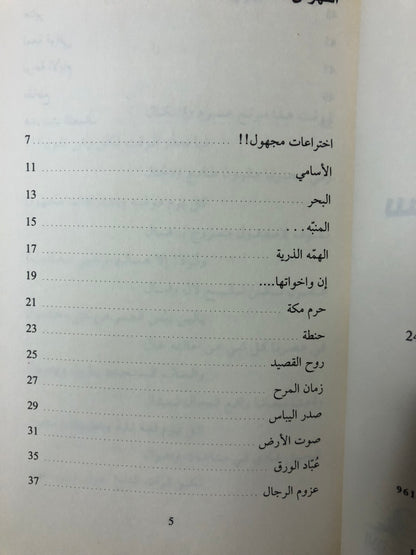 الفهرس
اختراعات مجهول!! ........ 7
الأسامي ........ 11
البحر ........ 13
المنبّه... ........ 15
الهمّه الذرية ........ 17
إن واخواتها.... ........ 19
حرم مكة ........ 21
حنطة ........ 23
روح القصيد ........ 25
زمان المرح ........ 27
صدر اليباس ........ 29
صوت الأرض ........ 31
عُبّاد الورق ........ 35
عزوم الرجال ........ 37
5
24
961